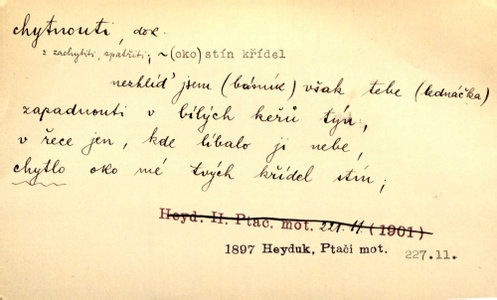 chytnouti, dok.
3 zachytiti, spatřiti; ~(oko) stín křídel
nezhlíd' jsem (básník) však tebe (ledňáčka)
zapadnouti v bílých keřů týn,
v řece jen, kde líbalo ji nebe,
chytlo oko mé tvých křídel stín;
Heyd. H. Ptač. mot. 227.11 (1901)
1897 Heyduk, Ptačí mot. 227.11.